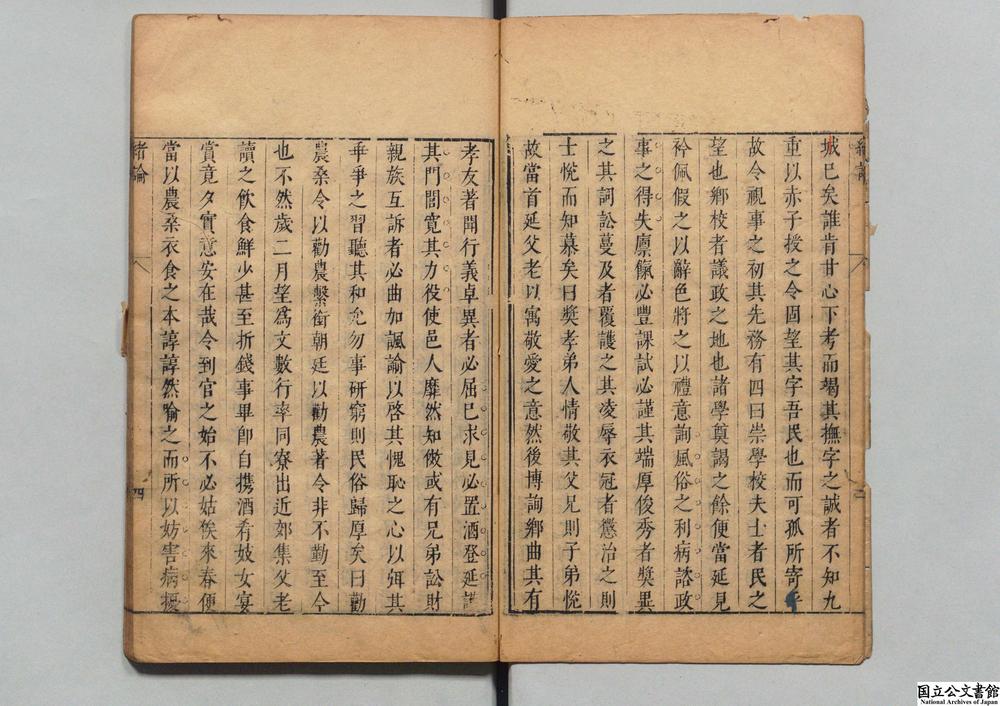 緒論
城已矣誰肯甘心下考而竭其撫字之誠者不知九
重以赤子授之令固望其字吾民也而可孤所寄乎
故令視事之初其先務有四曰崇學校夫士者民之
望也鄉校者議政之地也諸學奠謁之餘便當延見
衿佩假之以辭色將之以禮意詢風俗之利病諮政
事之得失廩餼必豐課試必謹其端厚俊秀者獎異
之其詞訟蔓及者覆護之其凌辱衣冠者懲治之則
士悅而知慕矣曰獎孝弟人情敬其父兄則子弟悅
故當首延父老以寓敬愛之意然後博詢鄉曲其有
孝友著聞行義卓異者必屈已求見必置酒登延講
其門閭寬其力役使邑人靡然知倣或有兄弟訟財
親族互訴者必曲加諷諭以啓其愧恥之心以弭其
乖爭之習聽其和允勿事研窮則民俗歸厚矣曰勸
農桑令以勸農繫銜朝廷以勸農著令非不勤至今
也不然歲二月望爲文數行率同寮出近郊集父老
讀之飲食鮮少甚至折錢事畢卽自攜酒肴妓女宴
賞竟夕實意安在哉令到官之始不必姑俟來春便
當以農桑衣食之本諄諄然喻之而所以妨害病擾
緒論
四
国立公文書館
National Archives of Japan